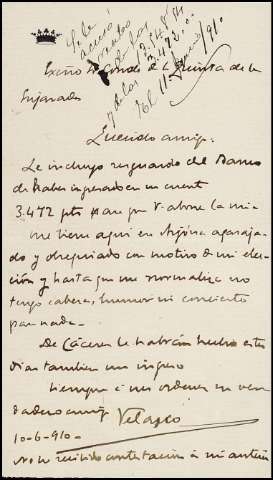 Se le
acusó
recibo
de las
3.484
y de las 3.472
El 11 Junio/910.
Excmo Sr Conde de la Quinta de la
Enjarada
Querido amigo:
Le incluyo resguardo del Banco
de haber ingresado en su cuent
3.472 pts para que V. abone la mia
me tiene aqui en agasaja-
do y obsequiado con motivo de mi elec-
ción y hasta que me normalize no
tengo cabeza, humor ni conciento
para nada.
De Cáceres le habran hecho estos
dias tambien un ingreso
Siempre a sus ordenes su ver
dadero amigo
Velasco
10-6-910-
No he recibido contestación a mi anterior